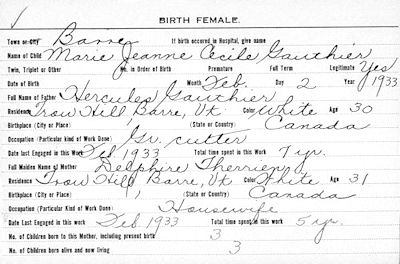 BIRTH FEMALE.
Town or City Barre If birth occurred in Hospital, give name
Name of Child Marie Jeanne Cecile Gauthier
Twin, Triplet or Other No. in Order of Birth Premature Full Term Legitimate Yes
Date of Birth Month Feb. Day 2 Year 1933
Full Name of Father Hercules Gauthier
Residence Trow Hill Barre, Vt. Color White Age 30
Birthplace (City or Place) (State or Country) Canada
Occupation (Particular kind of Work Done) Gr. cutter
Date last Engaged in this Work Feb 1933 Total time spent in this work 7 yr.
Full Maiden Name of Mother Delphire Therrien
Residence Trow Hill Barre, Vt Color White Age 31
Birthplace (City or Place) (State or Country) Canada
Occupation (Particular Kind of Work Done) Housewife
Date Last Engaged in this work Feb 1933 Total time spent in this work 5 yr.
No. of Children born to this Mother, including present birth 3
No. of Children born alive and now living 3